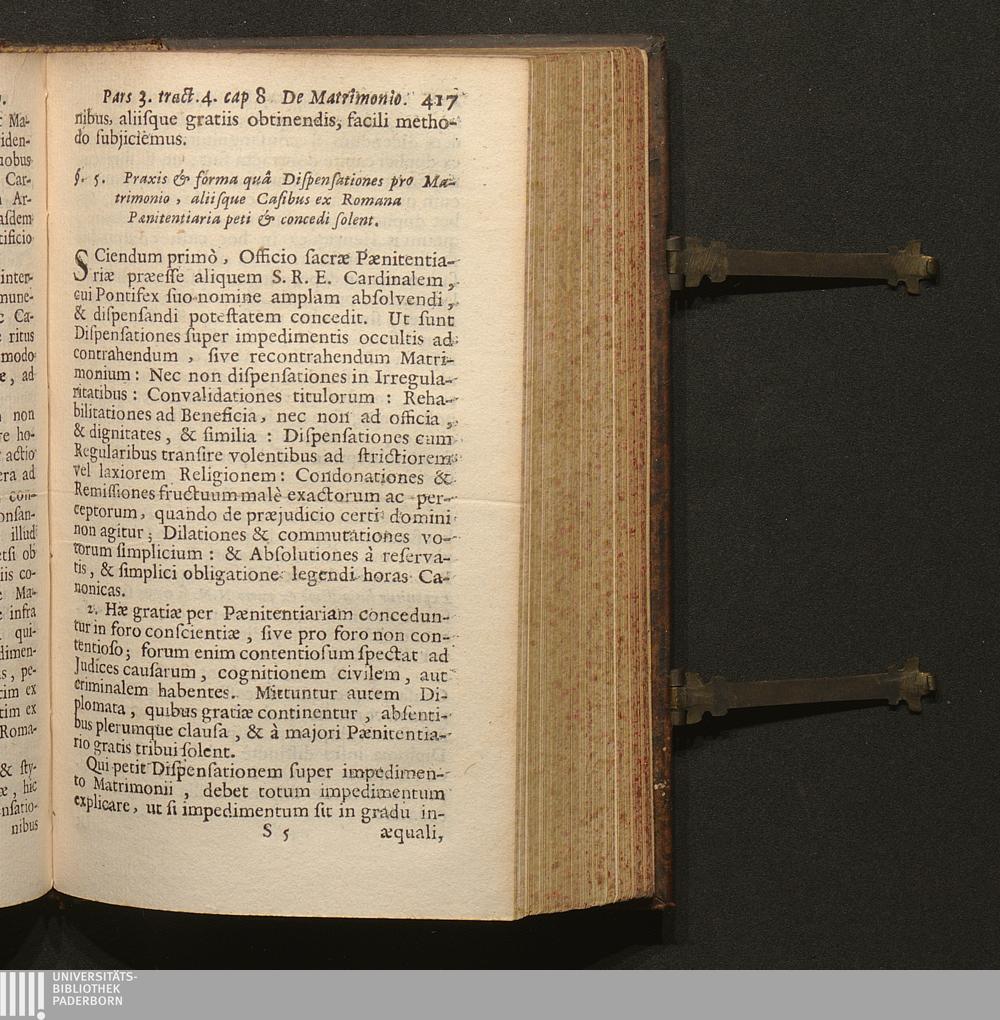 Pars 3. tract. 4. cap 8 De Matrimonio. 417
nibus, aliisque gratiis obtinendis, facili metho-
do subjiciemus.
§. 5. Praxis & forma quâ Dispensationes pro Ma-
trimonio, aliisque Casibus ex Romana
Pænitentiaria peti & concedi solent.
SCiendum primò, Officio sacræ Pænitentia-
riæ præesse aliquem S. R. E. Cardinalem,
cui Pontifex suo nomine amplam absolvendi,
& dispensandi potestatem concedit. Ut sunt
Dispensationes super impedimentis occultis ad
contrahendum, sive recontrahendum Matri-
monium: Nec non dispensationes in Irregula-
ritatibus: Convalidationes titulorum: Reha-
bilitationes ad Beneficia, nec non ad officia,
& dignitates, & similia: Dispensationes cum
Regularibus transire volentibus ad strictiorem
vel laxiorem Religionem: Condonationes &
Remissiones fructuum malè exactorum ac per-
ceptorum, quando de præjudicio certi domini
non agitur; Dilationes & commutationes vo-
torum simplicium: & Absolutiones à reserva-
tis, & simplici obligatione legendi horas Ca-
nonicas.
2. Hæ gratiæ per Pænitentiariam concedun-
tur in foro conscientiæ, sive pro foro non con-
tentioso; forum enim contentiosum spectat ad
Judices causarum, cognitionem civilem, aut
criminalem habentes. Mittuntur autem Di-
plomata, quibus gratiæ continentur, absenti-
bus plerumque clausa, & à majori Pænitentia-
rio gratis tribui solent.
Qui petit Dispensationem super impedimen-
to Matrimonii, debet totum impedimentum
explicare, ut si impedimentum sit in gradu in-
S 5 æquali,
Ma-
iden-
nobus
Car-
Ar-
asdem
tificio
inter-
mune-
Ca-
ritus
modo
æ, ad
non
re ho-
actio
era ad
con-
onsan-
illud
etsi ob
iis co-
Ma-
infra
qui-
dimen-
s, pe-
tim ex
tim ex
Roma-
& sty-
æ, hic
nsatio-
nibus
UNIVERSITÄTS-
BIBLIOTHEK
PADERBORN